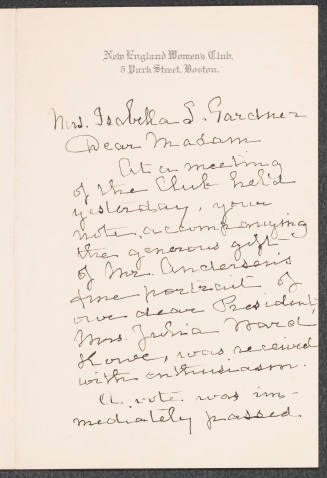 New England Women's Club,
5 Park Street, Boston.
Mrs. Isabella S. Gardner
Dear Madam
At a meeting
of the Club held
yesterday, your
note accompanying
the generous gift
of Mr. Anderson's
fine portrait of
our dear President,
Mrs. Julia Ward
Howe, was received
with enthusiasm.
A vote was im-
mediately passed